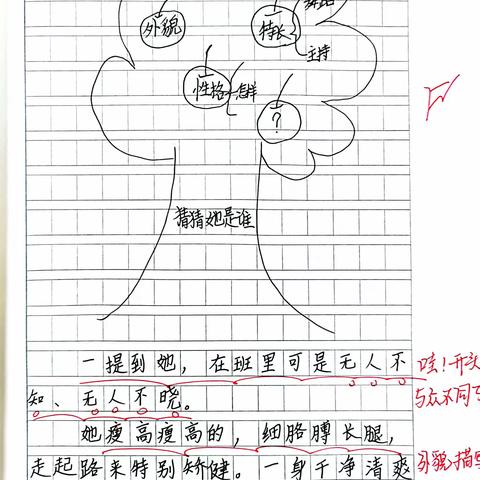 外貌
特长
主持
性格
怎样
?
猜猜她是谁
一提到她,在班里可是无人不
哇!开头
知、无人不晓。
与众不同
她瘦高瘦高的,细胳膊长腿,
走起路来特别矫健。一身干净清爽
外貌描